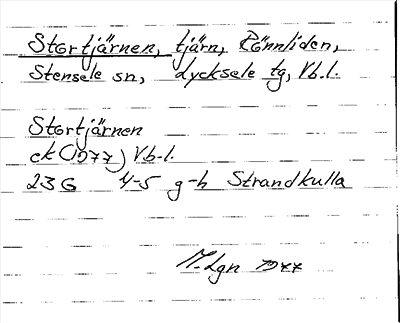 Stortjärnen, tjärn, Rönnliden,
Stensele sn, Lycksele tg, Vb.l.
Stortjärnen
ek (1977) Vb.l.
23G 4-5 g-h Strandkulla
M.Lgn 1977